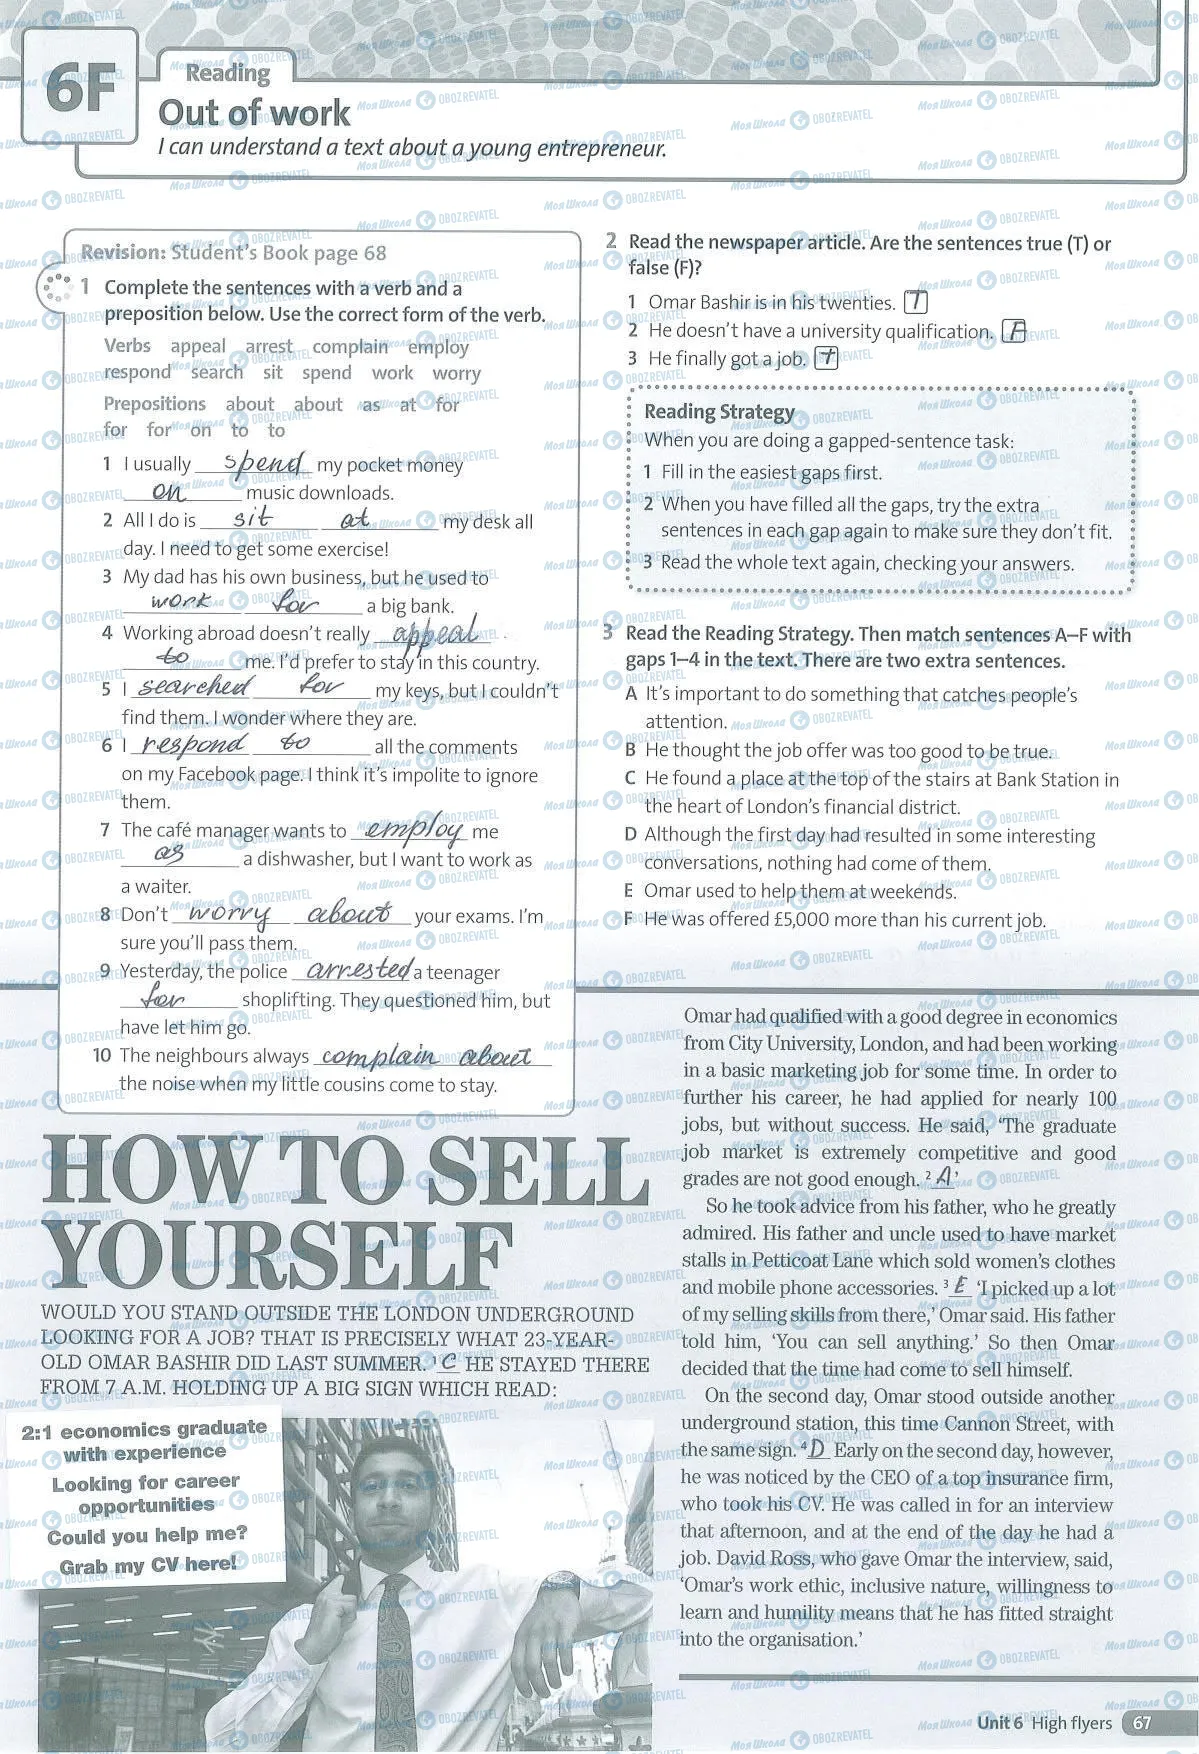 6F
Reading
Out of work
I can understand a text about a young entrepreneur.
Revision: Student's Book page 68
1 Complete the sentences with a verb and a
preposition below. Use the correct form of the verb.
Verbs appeal arrest complain employ
respond search sit spend work worry
Prepositions about about as at for
for for on to to
1 I usually spend my pocket money
on music downloads.
2 All I do is sit at my desk all
day. I need to get some exercise!
3 My dad has his own business, but he used to
work for a big bank.
4 Working abroad doesn't really appeal
to me. I'd prefer to stay in this country.
5 I searched for my keys, but I couldn't
find them. I wonder where they are.
6 I respond to all the comments
on my Facebook page. I think it's impolite to ignore
them.
7 The café manager wants to employ me
as a dishwasher, but I want to work as
a waiter.
8 Don't worry about your exams. I'm
sure you'll pass them.
9 Yesterday, the police arrested a teenager
for shoplifting. They questioned him, but
have let him go.
10 The neighbours always complain about
the noise when my little cousins come to stay.
2 Read the newspaper article. Are the sentences true (T) or
false (F)?
1 Omar Bashir is in his twenties. T
2 He doesn't have a university qualification. F
3 He finally got a job. T
Reading Strategy
When you are doing a gapped-sentence task:
1 Fill in the easiest gaps first.
2 When you have filled all the gaps, try the extra
sentences in each gap again to make sure they don't fit.
3 Read the whole text again, checking your answers.
3 Read the Reading Strategy. Then match sentences A–F with
gaps 1–4 in the text. There are two extra sentences.
A It's important to do something that catches people's
attention.
B He thought the job offer was too good to be true.
C He found a place at the top of the stairs at Bank Station in
the heart of London's financial district.
D Although the first day had resulted in some interesting
conversations, nothing had come of them.
E Omar used to help them at weekends.
F He was offered £5,000 more than his current job.
HOW TO SELL
YOURSELF
WOULD YOU STAND OUTSIDE THE LONDON UNDERGROUND
LOOKING FOR A JOB? THAT IS PRECISELY WHAT 23-YEAR-
OLD OMAR BASHIR DID LAST SUMMER. 1 C HE STAYED THERE
FROM 7 A.M. HOLDING UP A BIG SIGN WHICH READ:
2:1 economics graduate
with experience
Looking for career
opportunities
Could you help me?
Grab my CV here!
Omar had qualified with a good degree in economics
from City University, London, and had been working
in a basic marketing job for some time. In order to
further his career, he had applied for nearly 100
jobs, but without success. He said, 'The graduate
job market is extremely competitive and good
grades are not good enough. 2 A'
So he took advice from his father, who he greatly
admired. His father and uncle used to have market
stalls in Petticoat Lane which sold women's clothes
and mobile phone accessories. 3 E 'I picked up a lot
of my selling skills from there,' Omar said. His father
told him, 'You can sell anything.' So then Omar
decided that the time had come to sell himself.
On the second day, Omar stood outside another
underground station, this time Cannon Street, with
the same sign. 4 D Early on the second day, however,
he was noticed by the CEO of a top insurance firm,
who took his CV. He was called in for an interview
that afternoon, and at the end of the day he had a
job. David Ross, who gave Omar the interview, said,
'Omar's work ethic, inclusive nature, willingness to
learn and humility means that he has fitted straight
into the organisation.'
Unit 6 High flyers 67
Моя Школа OBOZREVATEL